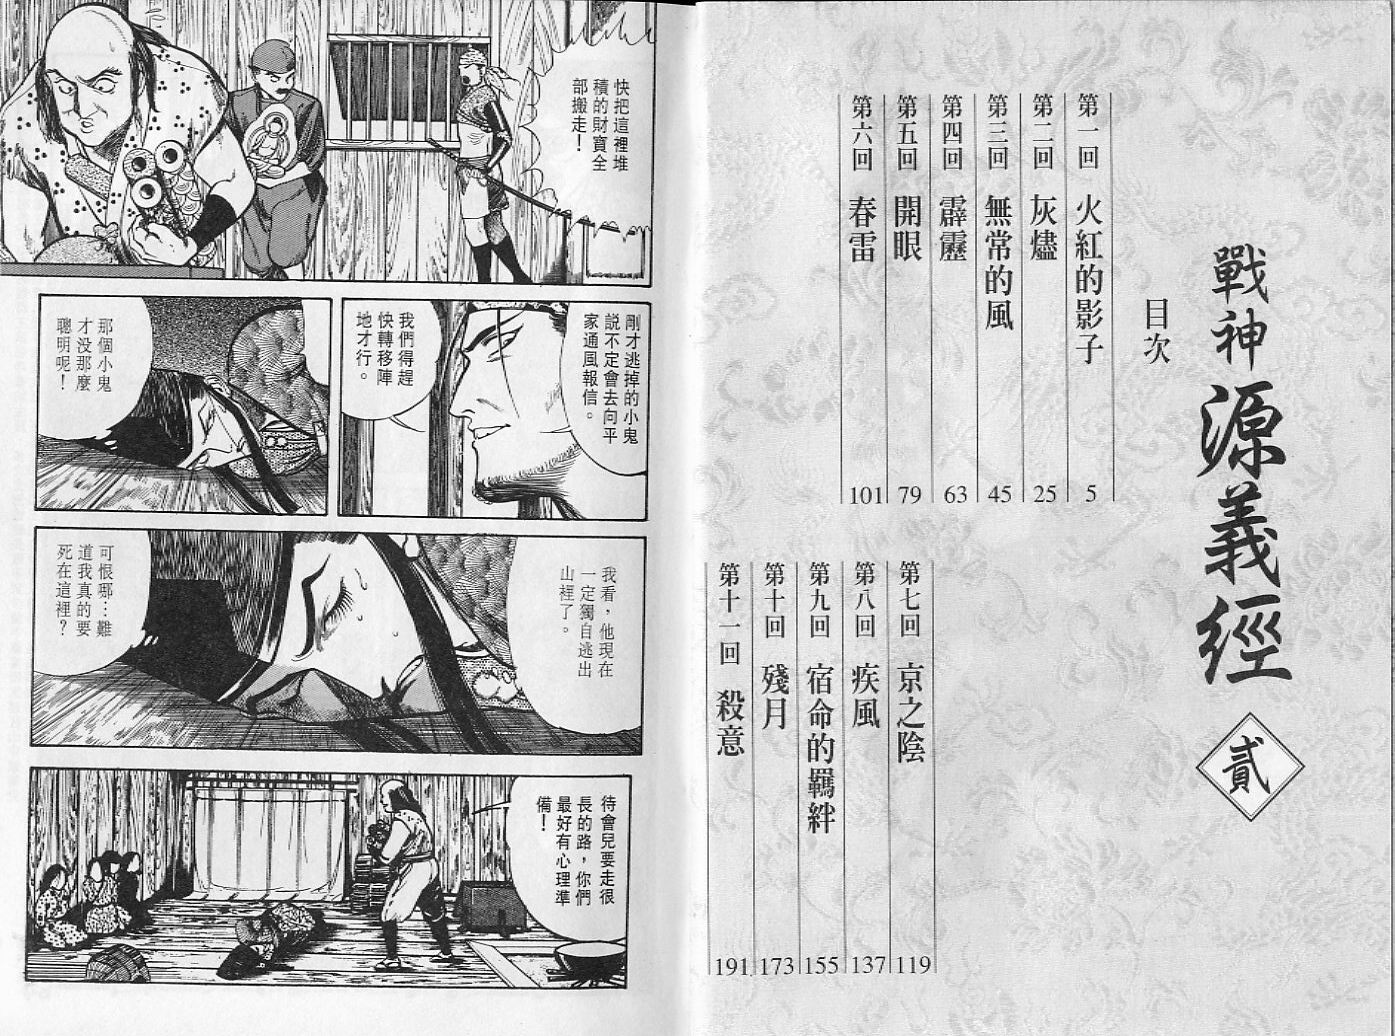 戰神
源義經
貳
目次
第一回 火紅的影子 5
第二回 灰燼 25
第三回 無常的風 45
第四回 霹靂 63
第五回 開眼 79
第六回 春雷 101
第七回 京之陰 119
第八回 疾風 137
第九回 宿命的羈絆 155
第十回 殘月 173
第十一回 殺意 191
快把這裡堆
積的財寶全
部搬走！
剛才逃掉的小鬼
說不定會去向平
家通風報信。
我們得趕
快轉移陣
地才行。
那個小鬼
才没那麼
聰明呢！
我看，他現在
一定獨自逃出
山裡了。
可恨哪…難
道我真的要
死在這裡？
待會兒要走很
長的路，你們
最好有心理準
備！